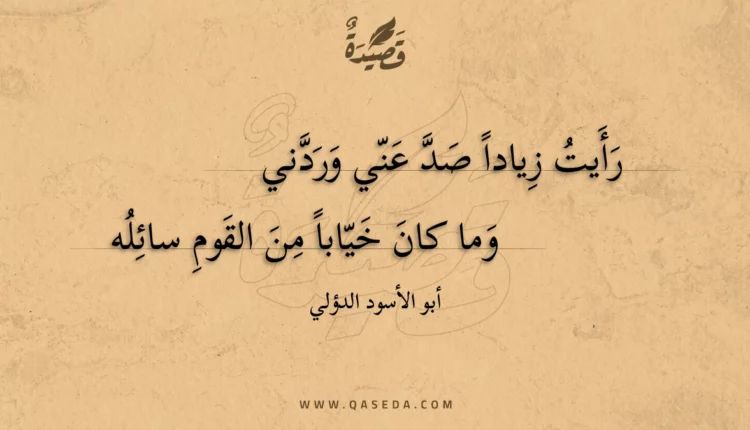 قَصِيْدَةٌ
رَأَيتُ زِياداً صَدَّ عَنّي وَرَدَّني
وَما كانَ خَيّاباً مِنَ القَومِ سائِلُه
أبو الأسود الدؤلي
WWW.QASEDA.COM